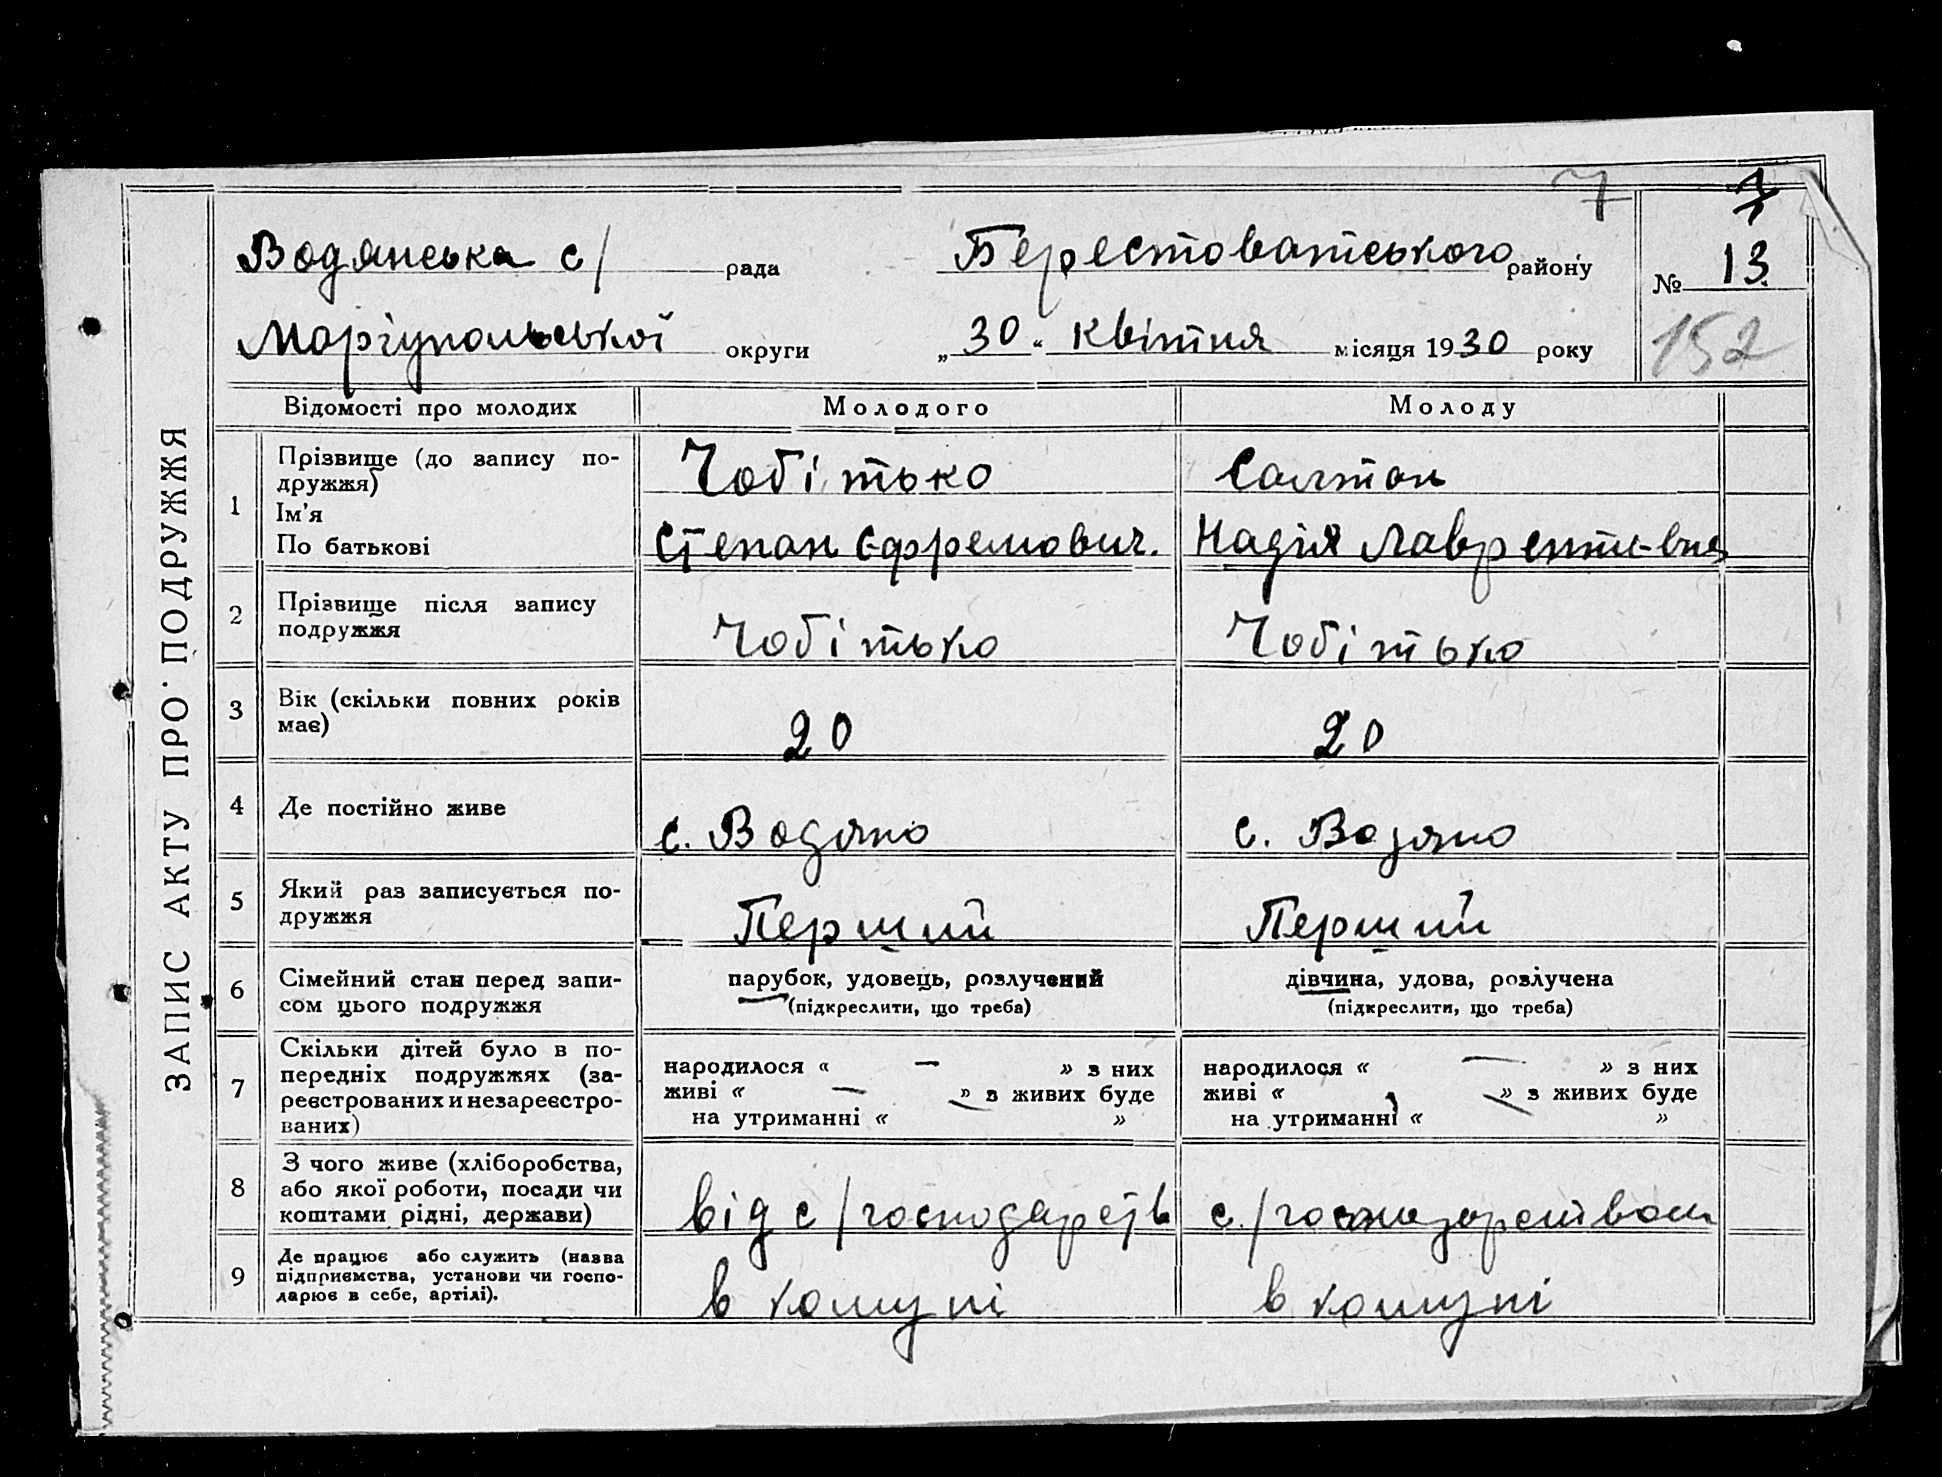 ЗАПИС АКТУ ПРО ПОДРУЖЖЯ
7
Водянська с/ рада Берестоватського району
№ 13
Маріупольської округи „30“ квітня місяця 1930 року
152
Відомості про молодих Молодого Молоду
1 Прізвище (до запису по-
дружжя)
Ім'я
По батькові
Чобітько
Степан Єфремович.
Салтан
Надія Лаврентіевна
2 Прізвище після запису
подружжя
Чобітько Чобітько
3 Вік (скільки повних років
має)
20 20
4 Де постійно живе
с. Водяно с. Водяно
5 Який раз записується по-
дружжя
Перший Перший
6 Сімейний стан перед запи-
сом цього подружжя
парубок, удовець, розлучений
(підкреслити, що треба)
дівчина, удова, розлучена
(підкреслити, що треба)
7 Скільки дітей було в по-
передніх подружжях (за-
реєстрованих и незареєстро-
ваних)
народилося « — » з них
живі « — » з живих буде
на утриманні « »
народилося « — » з них
живі « » з живих буде
на утриманні « »
8 З чого живе (хліборобства,
або якої роботи, посади чи
коштами рідні, держави)
від с/господарств с./господарством
9 Де працює або служить (назва
підприємства, установи чи госпо-
дарює в себе, артілі).
в комуні в комуні